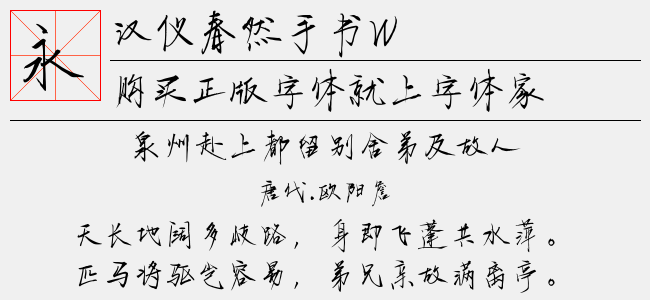 永
汉仪春然手书W
购买正版字体就上字体家
泉州赴上都留别舍弟及故人
唐代.欧阳詹
天长地阔多岐路，身即飞蓬共水萍。
匹马将驱岂容易，弟兄亲故满离亭。